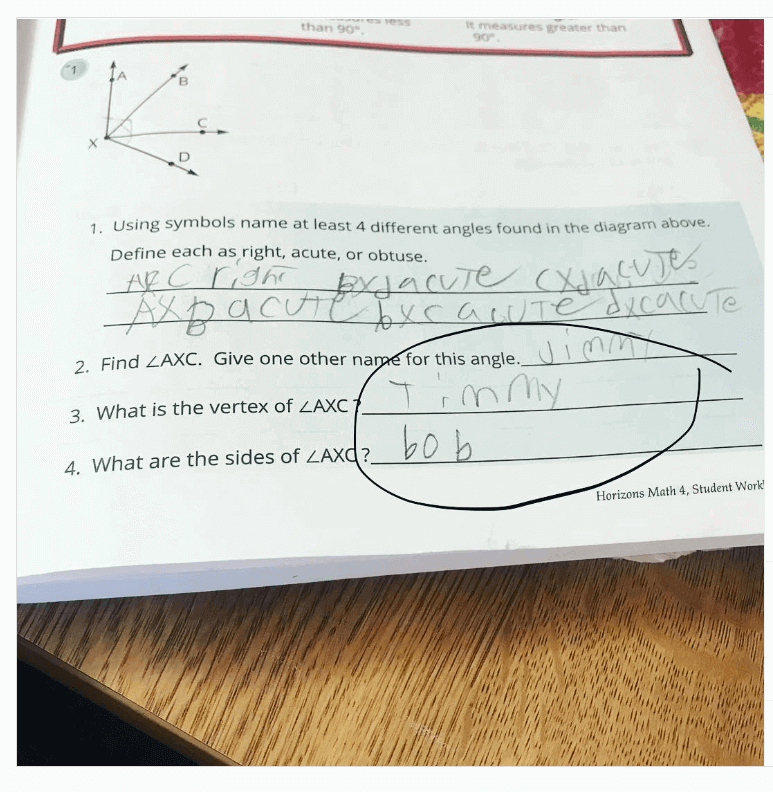 than 90°.
It measures greater than
90°.
1
A
B
C
X
D
1. Using symbols name at least 4 different angles found in the diagram above.
Define each as right, acute, or obtuse.
right bxd acute cxd acute
AXB acute bxc acute dxc acute
2. Find ∠AXC. Give one other name for this angle. Jimmy
3. What is the vertex of ∠AXC? Timmy
4. What are the sides of ∠AXC? bob
Horizons Math 4, Student Work